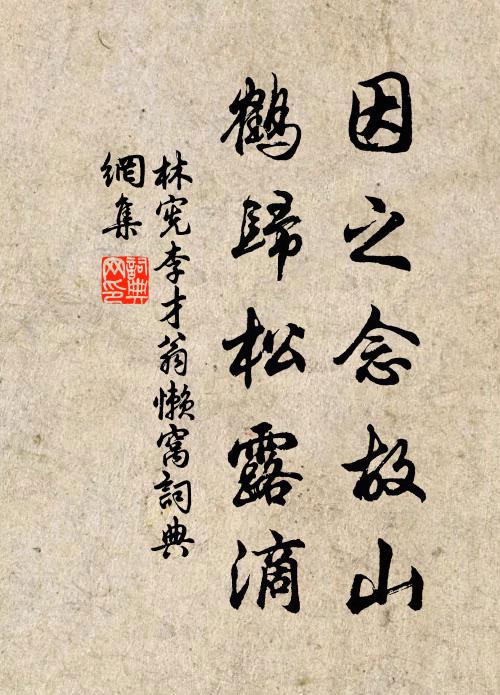 因之念故山
鶴歸松露滴
林宪李才翁懒窩詞典
網集
詞典
网印